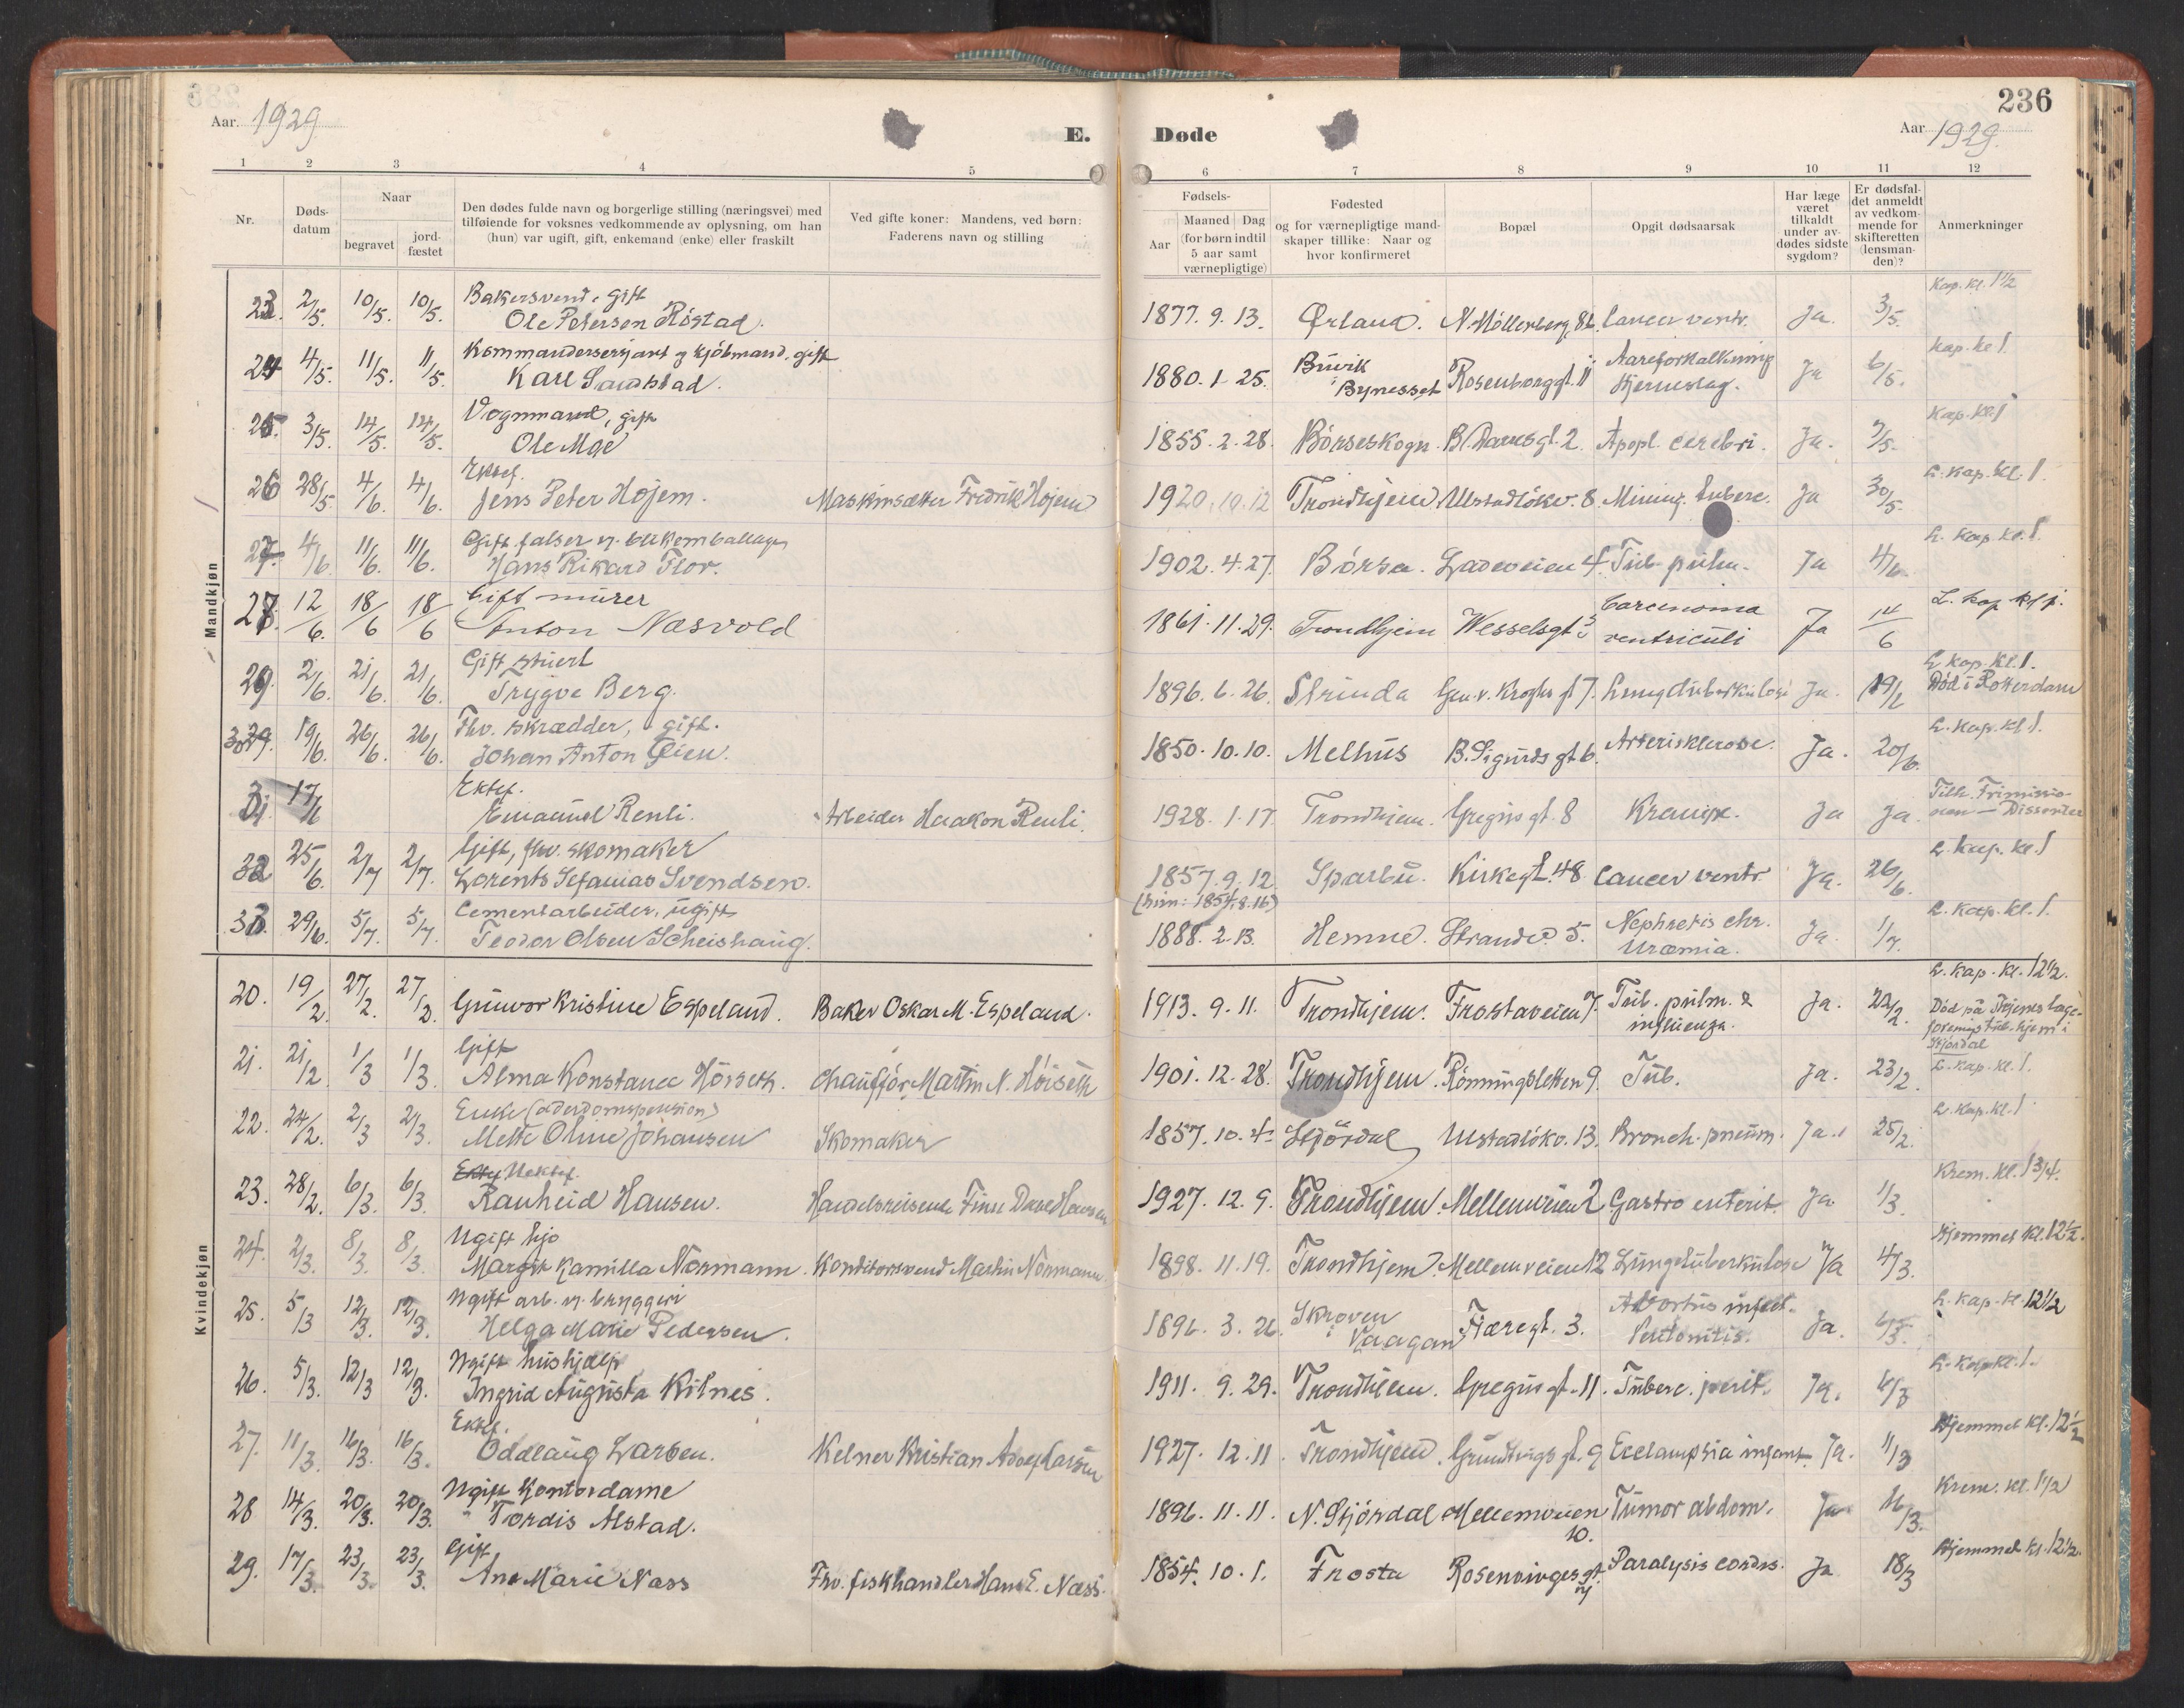 236
Aar. 1929
E. Døde
Aar 1929.
1 2 3 4 5 6 7 8 9 10 11 12
Nr.
Døds-
datum
Naar
begravet
jord-
fæstet
Den dødes fulde navn og borgerlige stilling (næringsvei) med
tilføiende for voksnes vedkommende av oplysning, om han
(hun) var ugift, gift, enkemand (enke) eller fraskilt
Ved gifte koner: Mandens, ved børn:
Faderens navn og stilling
Fødsels-
Aar
Maaned Dag
(for børn indtil
5 aar samt
værnepligtige)
Fødested
og for værnepligtige mand-
skaper tillike: Naar og
hvor konfirmeret
Bopæl
Opgit dødsaarsak
Har læge
været
tilkaldt
under av-
dødes sidste
sygdom?
Er dødsfal-
det anmeldt
av vedkom-
mende for
skifteretten
(lensman-
den)?
Anmerkninger
Mandkjøn
Bakersvend, gift Kap. kl. 1 1/2
23. 2/5. 10/5. 10/5. Ole Petersen Røstad. 1877. 9. 13. Ørland. N. Møllenberg 86. Cancer ventr. Ja. 3/5.
Kommandersersjant og kjøbmand, gift Buvik Aareforkalkning Kap. kl 1.
24 4/5. 11/5. 11/5. Karl Sandstad. 1880. 1. 25. i Bynesset Rosenborggt. 11 Hjerneslag. Ja 6/5.
Vognmand, gift Kap. kl. 1
25. 3/5. 14/5. 14/5. Ole Moe 1855. 2. 28. Børseskogn. Apopl. cerebri. Ja. 7/5.
Ektef. L. kap. kl. 1.
26 28/5. 4/6. 4/6. Jens Peter Højem. Maskinsætter Fredrik Højem 1920. 10. 12 Trondhjem. Ulstadløkv. 8. Mining. tuberc. Ja 30/5.
Gift falser v. blikemballagen L. kap. kl. 1.
27. 4/6 11/6. 11/6. Hans Rikard Flor. 1902. 4. 27. Børsa. Ladeveien 4. Tub. pulm. Ja 4/6.
Gift murer Carcinoma L. kap kl 1.
28. 12/6. 18/6 18/6 Anton Næsvold 1861. 11. 29. Trondhjem Wesselsgt ventriculi Ja 14/6
Gift stuert L kap. kl. 1.
29. 2/6. 21/6. 21/6. Trygve Berg. 1896. 6. 26. Strinda Gen. v. Kroghs gt 7. Lungetuberkulose Ja. 19/6 Død i Rotterdam
Fhv. skrædder, gift. L. kap. kl. 1.
30 29. 19/6. 26/6. 26/6. Johan Anton Øien. 1850. 10. 10. Melhus B. Sigurds gt 6. Arterisklerose. Ja. 20/6.
Ektef. Tilh. Frimissio-
31 17/6 Emanuel Renli. Arbeider Haakon Renli. 1928. 1. 17. Trondhjem. Gregus gt. 8 Krampe. Ja Ja. nen — Dissenter
Gift, fhv. skomaker L. kap. kl. 1
32 25/6. 2/7 2/7. Lorents Sefanias Svendsen. 1857. 9. 12. Sparbu. Kirkegt. 48 Cancer ventr. Ja. 26/6.
(hun: 1854. 8. 16)
Cementarbeider, ugift Nephretis chr. L. kap. kl. 1.
33. 29/6. 5/7. 5/7. Teodor Olsen Scheishaug. 1888. 2. 13. Hemne. Strandv. 5. Uræmia. Ja. 1/7.
Kvindekjøn
L. kap. kl. 12 1/2.
20. 19/2. 27/2. 27/2. Gunvor Kristine Espeland. Baker Oskar M. Espeland. 1913. 9. 11. Trondhjem. Frostaveien 7. Tub. pulm. & influenza. Ja. 22/2. Død på Thjems Lage-
forenings tub. hjem i
Stjørdal
Gift L. kap. kl. 1.
21. 21/2 1/3 1/3. Alma Konstance Høiseth. Chauffør Martin N. Høiseth 1901. 12. 28. Trondhjem. Rønningsletten 9. Tub. Ja. 23/2.
Enke (alderdomspension) L. kap. kl. 1
22. 24/2. 2/3 2/3. Mette Oline Johansen Skomaker 1857. 10. 4. Stjørdal Ulstadløkv. 13. Bronch. pneum. Ja. 25/2.
Ektef Uektef. Krem. kl. 1 3/4.
23. 28/2. 6/3. 6/3. Ranheid Hansen. Handelsreisende Finn Hansen 1927. 12. 9. Trondhjem. Mellemveien 2 Gastro enterit. Ja 1/3.
Ugift hjo Hjemmet kl. 12 1/2.
24. 2/3. 8/3. 8/3. Margit Kamilla Normann. Konditorsvend Martin Normann. 1898. 11. 19. Trondhjem. Mellemveien 12 Lungetuberkulose Ja 4/3.
Ugift arb. v. bryggeri Skroven Abortus infect. L. kap. kl 12 1/2
25. 5/3 12/3. 12/3. Helga Marie Pedersen. 1896. 3. 26. i Vaagan Fjæregt. 3. Peritonitis. Ja.
Ugift hushjælp L. kap kl. 1.
26. 5/3. 12/3 12/3. Ingrid Augusta Vitnes. 1911. 9. 29. Trondhjem. Gregus gt. 11. Tuberc. perit. Ja. 6/3
Ektef. Hjemmet kl. 12 1/2
27. 11/3. 16/3. 16/3. Oddlaug Larsen. Kelner Kristian Adolf Larsen 1927. 12. 11. Trondhjem. Grundtvigs gt. 9 Eclampsia infant. Ja. 11/3
Ugift Kontordame Krem. kl. 1 1/2
28 14/3. 20/3. 20/3. Tordis Alstad. 1896. 11. 11. N. Stjørdal Mellemveien 10. Tumor abdom. Ja 16/3.
Gift Hjemmet kl. 12 1/2.
29. 17/3. 23/3. 23/3. Ane Marie Næss Fhv. fiskhandler Hans E. Næss. 1854. 10. 1. Frosta Rosenvinges gt. Paralysis cordis. Ja 18/3